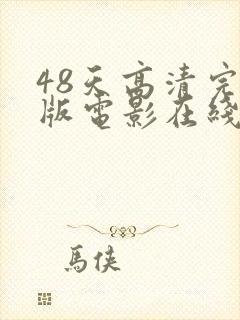 48天高清完
版電影在綫
馬俠